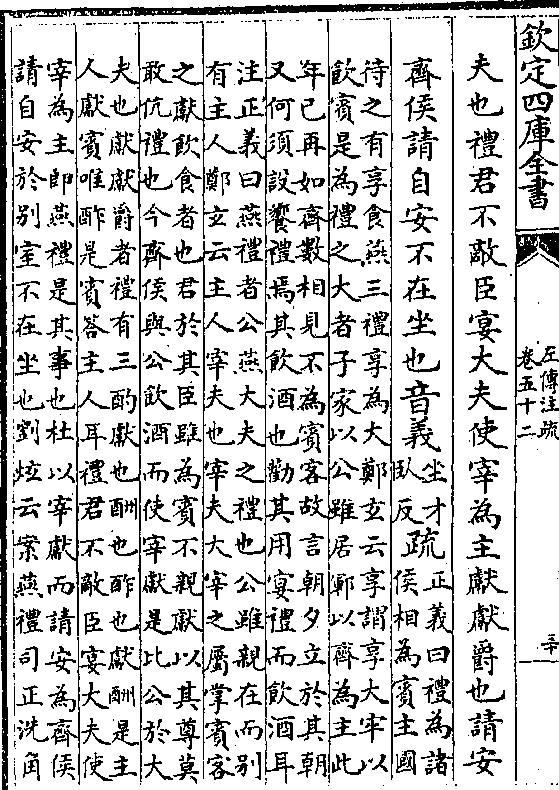 欽定四庫全書
左傳注疏
卷五十二
三十
夫也禮君不敵臣宴大夫使宰為主獻獻爵也請安
齊侯請自安不在坐也音義坐才
臥反疏正義曰禮為諸
侯相為賓主國
待之有享食燕三禮享為大鄭玄云享謂享大牢以
飲賓是為禮之大者子家以公雖居鄆以齊為主此
年已再如齊數相見不為賓客故言朝夕立於其朝
又何須設饗禮焉其飲酒也勸其用宴禮而飲酒耳
注正義曰燕禮者公燕大夫之禮也公雖親在而別
有主人鄭玄云主人宰夫也宰夫大宰之屬掌賓客
之獻飲食者也君於其臣雖為賓不親獻以其尊莫
敢伉禮也今齊侯與公飲酒而使宰獻是比公於大
夫也獻獻爵者禮有三酌獻也酬也酢也獻酬是主
人獻賓唯酢是賓答主人耳禮君不敵臣宴大夫使
宰為主即燕禮是其事也杜以宰獻而請安為齊侯
請自安於別室不在坐也劉炫云案燕禮司正洗角